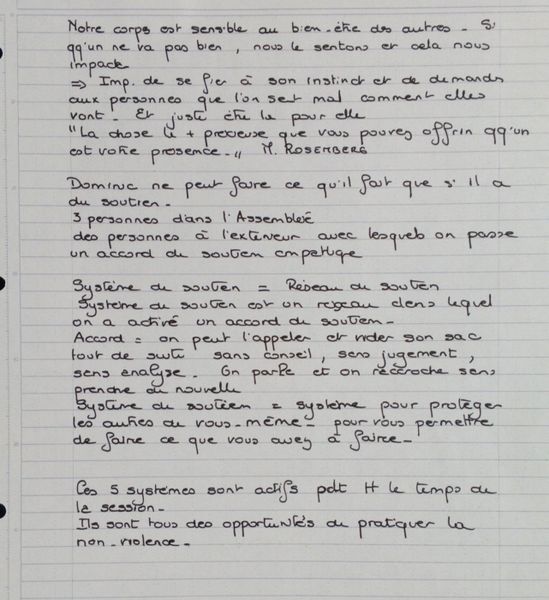 Notre corps est sensible au bien-être des autres. Si
qq'un ne va pas bien, nous le sentons et cela nous
impacte
⇒ Imp. de se fier à son instinct et de demander
aux personnes que l'on sent mal comment elles
vont. Et juste être là pour elle
"La chose la + précieuse que vous pouvez offrir qq'un
est votre présence." M. ROSENBERG
Dominic ne peut faire ce qu'il fait que s'il a
du soutien.
3 personnes dans l'Assemblée
des personnes à l'extérieur avec lesquels on passe
un accord de soutien empathique
Système de soutien = Réseau de soutien
Système de soutien est un réseau dans lequel
on a activé un accord de soutien.
Accord = on peut l'appeler et vider son sac
tout de suite sans conseil, sans jugement,
sans analyse. On parle et on raccroche sans
prendre de nouvelle
Système de soutien = système pour protéger
les autres de vous-même - pour vous permettre
de faire ce que vous avez à faire.
Ces 5 systèmes sont actifs pdt tt le temps de
la session.
Ils sont tous des opportunités de pratiquer la
non-violence.